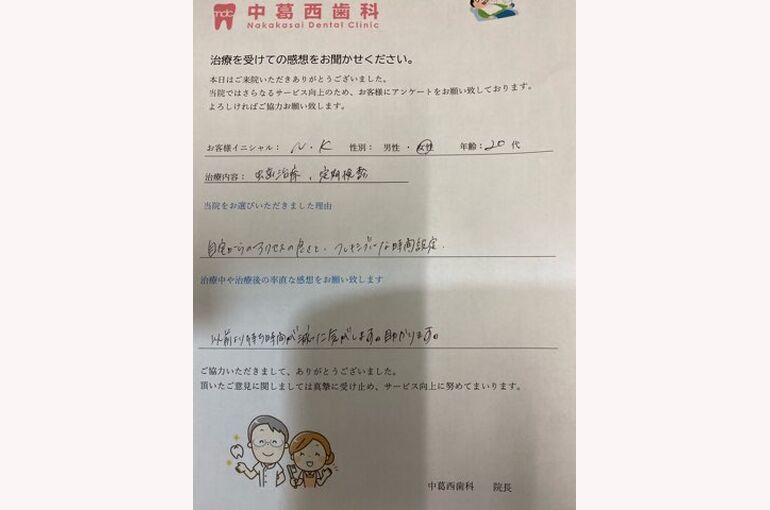 mdc
中葛西歯科
Nakakasai Dental Clinic
治療を受けての感想をお聞かせください。
本日はご来院いただきありがとうございました。
当院ではさらなるサービス向上のため、お客様にアンケートをお願い致しております。
よろしければご協力お願い致します。
お客様イニシャル： N・K 性別： 男性 ・ 女性 年齢：20 代
治療内容： 虫歯治療、定期検診
当院をお選びいただきました理由
自宅からのアクセスの良さと、フレキシブルな時間設定.
治療中や治療後の率直な感想をお願い致します
以前より待ち時間が減った気がします。助かります。
ご協力いただきまして、ありがとうございました。
頂いたご意見に関しましては真摯に受け止め、サービス向上に努めてまいります。
中葛西歯科 院長